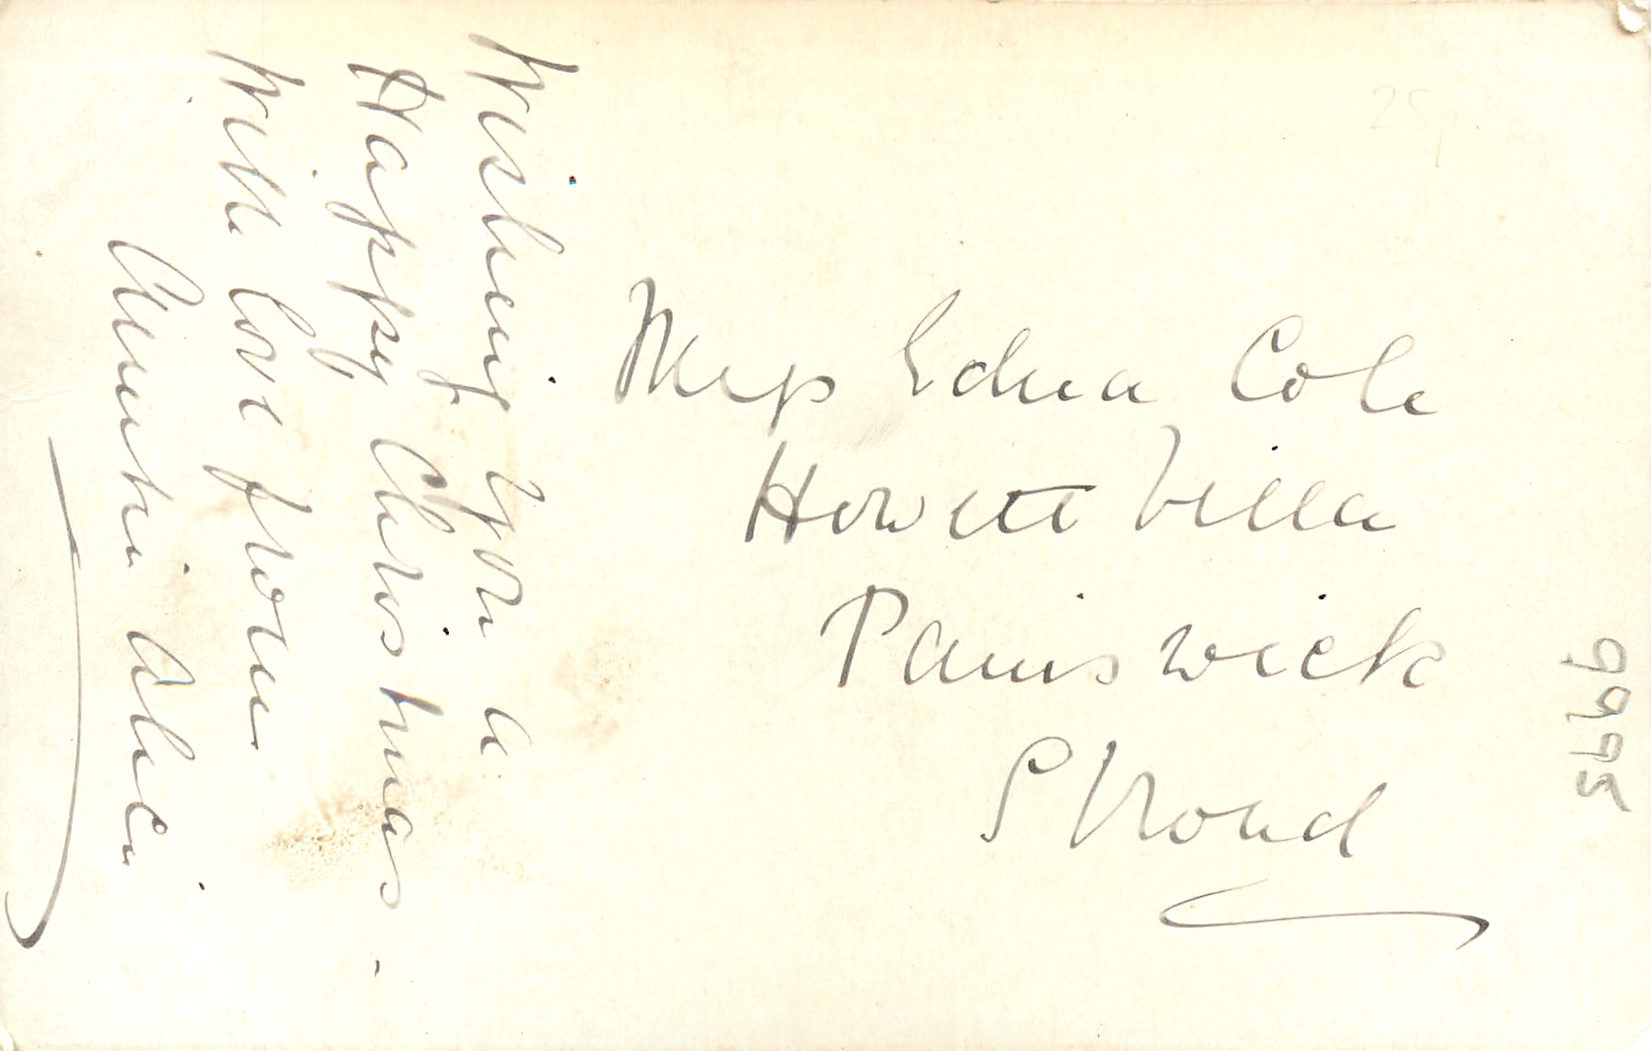 Wishing you a
Happy Christmas.
With love from
Auntie Alice
Miss Edna Cole
Howett Villa
Painswick
Stroud
25p